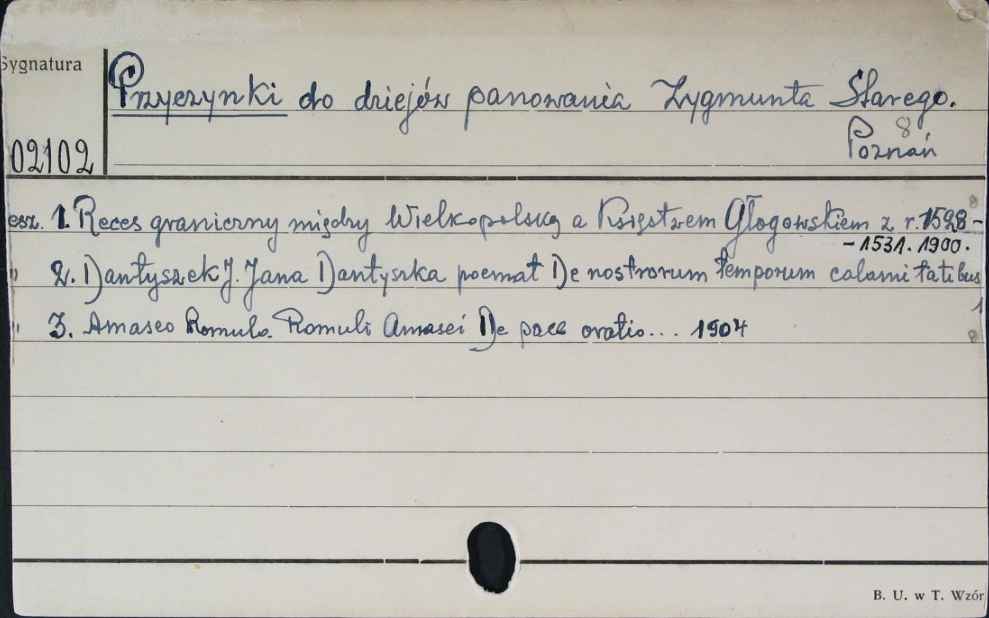 Sygnatura
Przyczynki do dziejów panowania Zygmunta Starego.
8
Poznań
02102
esz. 1. Reces graniczny między Wielkopolską a Księstwem Głogowskiem z r. 1528 -
- 1531. 1900.
" 2. Dantyszek J. Jana Dantyszka poemat De nostrorum temporum calamitatibus
1
" 3. Amaseo Romulo. Romuli Amasei De pace oratio... 1904
8
B. U. w T. Wzór